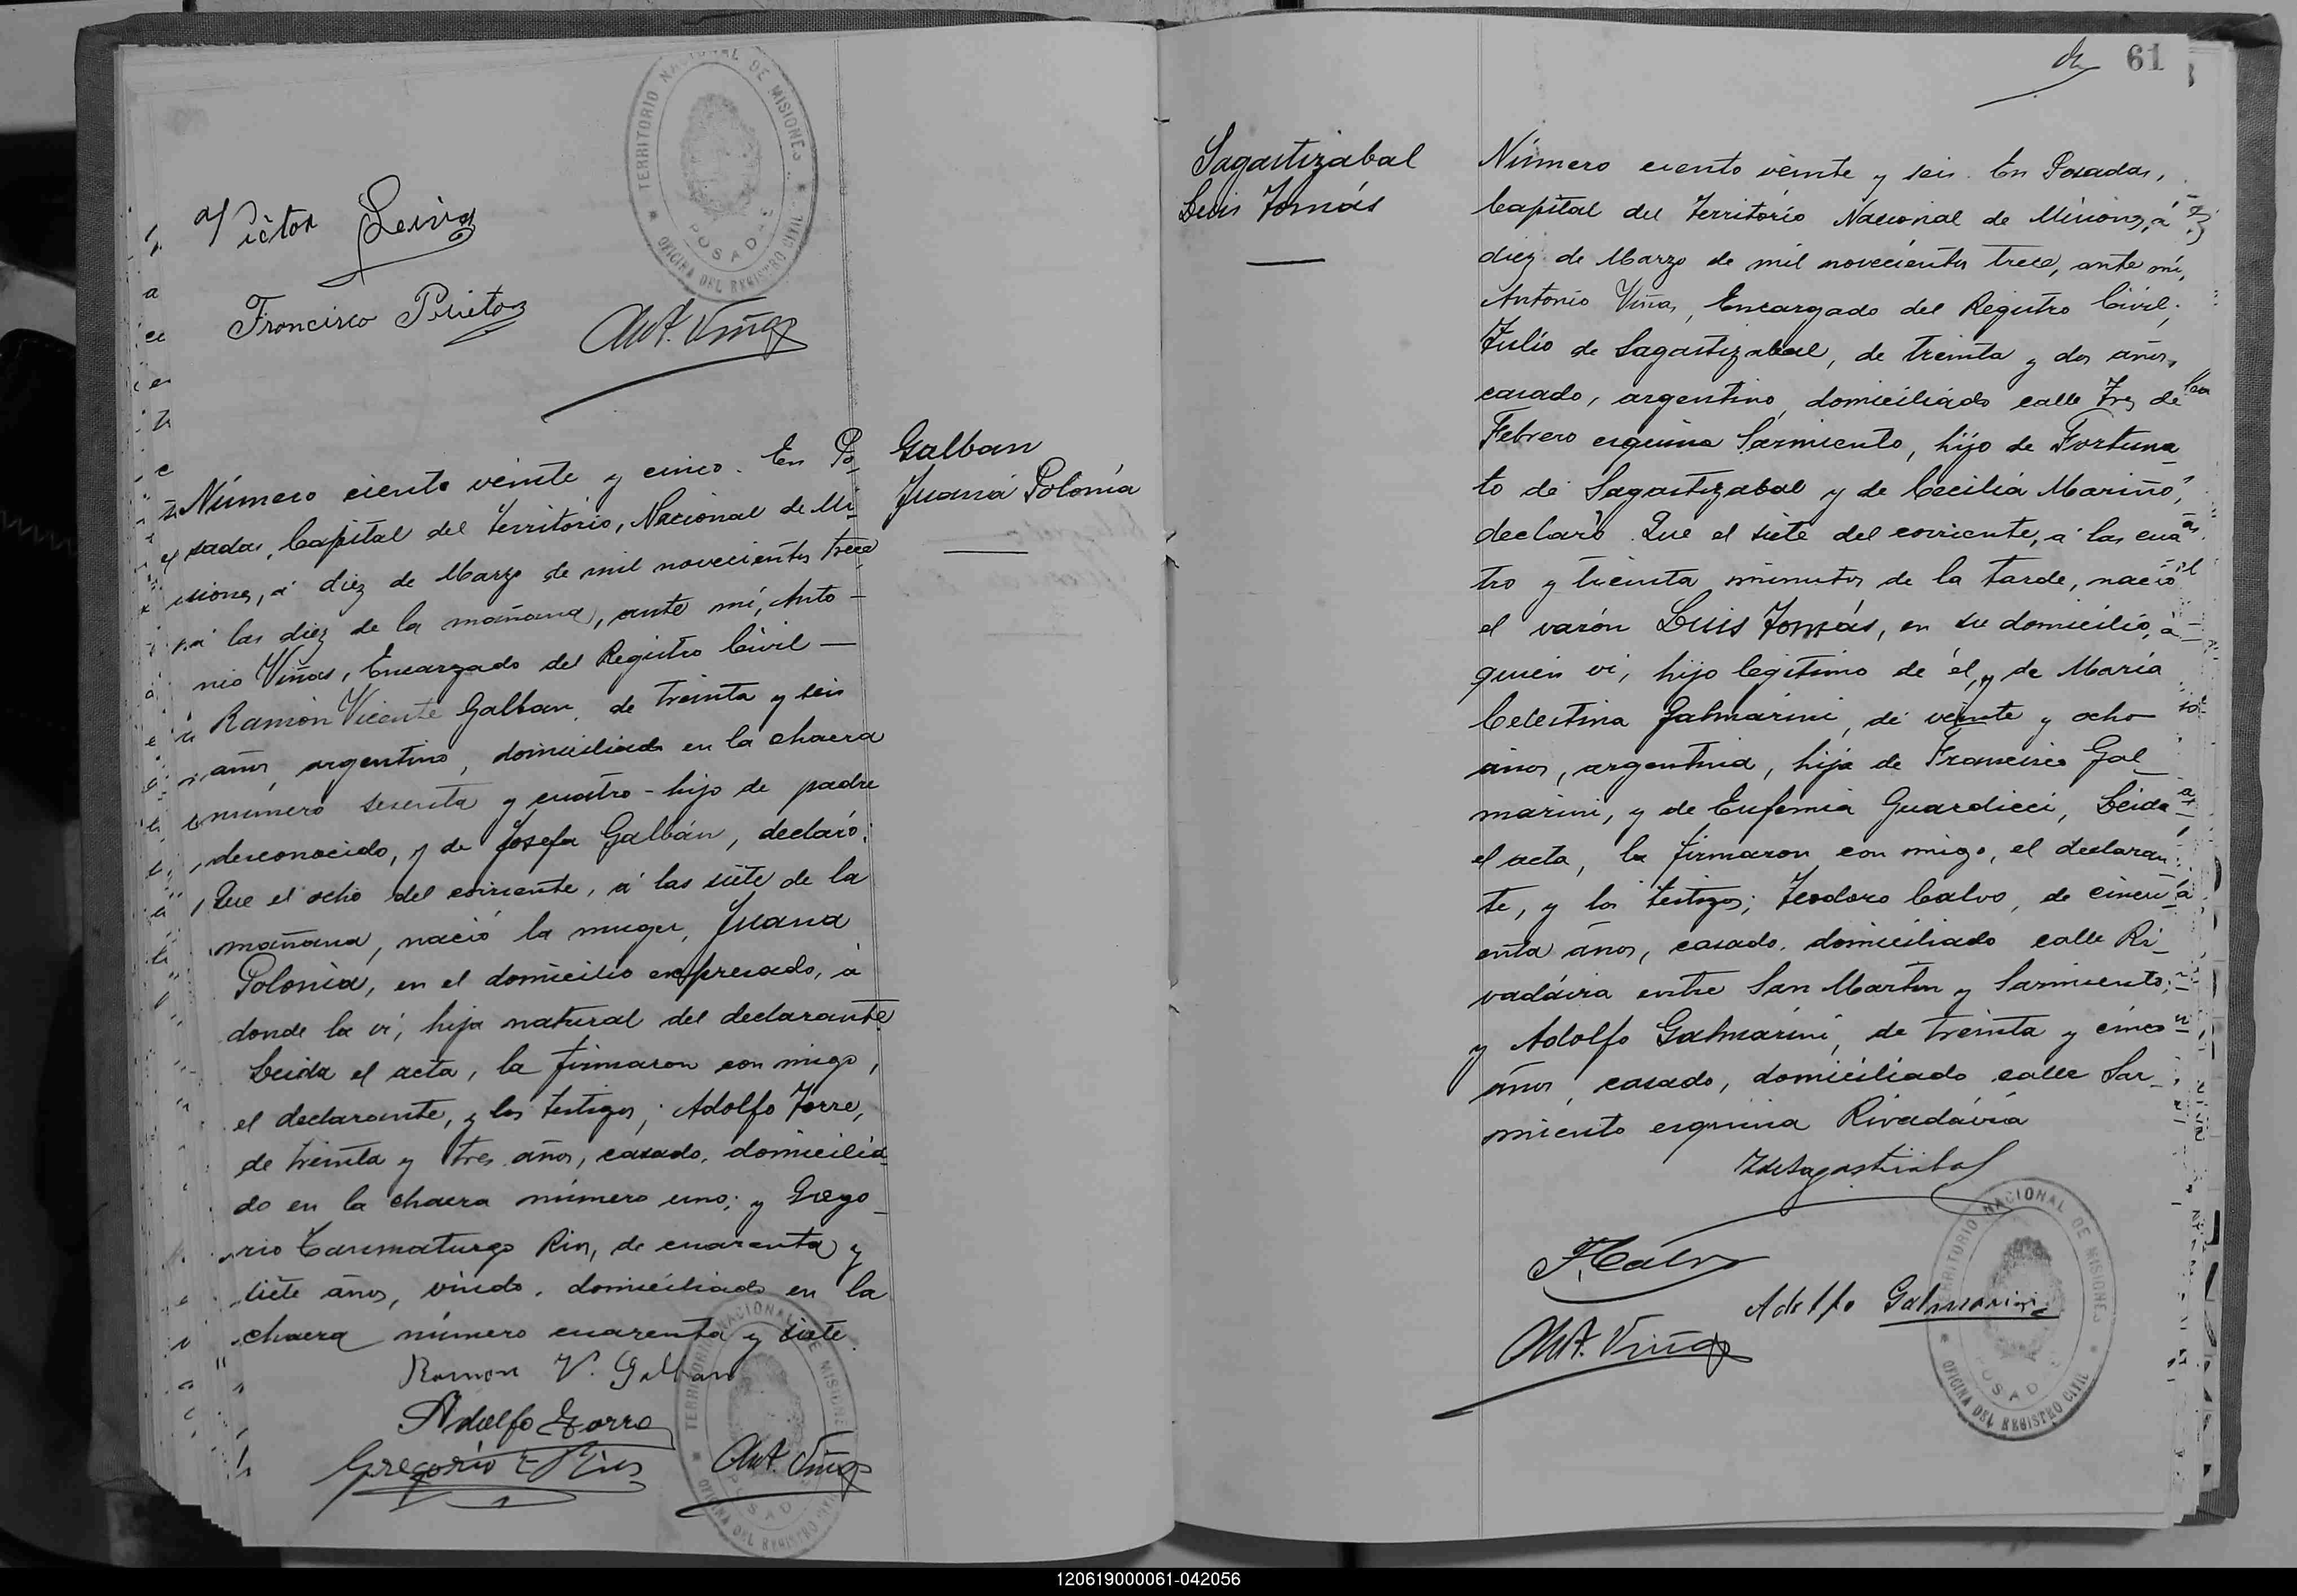 Victor Leiva
TERRITORIO NACIONAL DE MISIONES
POSADAS
OFICINA DEL REGISTRO CIVIL
Francisco Prieto
Ant. Viñas
Galban
Juana Polonia
Número ciento veinte y cinco. En Po_
sadas, Capital del Territorio, Nacional de Mi_
siones, á diez de Marzo de mil novecientos trece
á las diez de la mañana, ante mí, Anto_
nio Viñas, Encargado del Registro Civil —
Ramón Vicente Galban, de treinta y seis
años, argentino, domiciliado en la chacra
número sesenta y cuatro - hijo de padre
desconocido, y de Josefa Galbán, declaró:
Que el ocho del corriente, á las siete de la
mañana, nació la muger, Juana
Polonia, en el domicilio expresado, á
donde la ví, hija natural del declarante
Leida el acta, la firmaron con migo,
el declarante, y los testigos; Adolfo Torre,
de treinta y tres años, casado, domicilia_
do en la chacra número uno; y Grego_
rio Taumaturgo Rios, de cuarenta y
siete años, viudo, domiciliado en la
chacra número cuarenta y siete.
Ramon V. Galban
Adolfo Torre
Gregorio T Rios
Ant. Viñas
TERRITORIO NACIONAL DE MISIONES
POSADAS
OFICINA DEL REGISTRO CIVIL
61
Sagastizabal
Luis Tomás
Número ciento veinte y seis. En Posadas,
Capital del Territorio Nacional de Misiones, á
diez de Marzo de mil novecientos trece, ante mí,
Antonio Viñas, Encargado del Registro Civil;
Julio de Sagastizabal, de treinta y dos años,
casado, argentino, domiciliado calle Tres de
Febrero esquina Sarmiento, hijo de Fortuna_
to de Sagastizabal y de Cecilia Mariño,
declaró. Que el siete del corriente, á las cua
tro y treinta minutos de la tarde, nació
el varón Luis Tomás, en su domicilio, á
quien ví, hijo legítimo de él, y de María
Celestina Galmarini, de veinte y ocho
años, argentina, hija de Francisco Gal_
marini, y de Eufemia Guardicci, Leida
el acta, la firmaron con migo, el declaran_
te, y los testigos; Teodoro Calvo, de cincu_
enta años, casado, domiciliado calle Ri_
vadávia entre San Martin y Sarmiento;
y Adolfo Galmarini, de treinta y cinco
años, casado, domiciliado calle Sar_
miento esquina Rivadávia
JdeSagastizabal
T. Calvo
Adolfo Galmarini
Ant. Viñas
TERRITORIO NACIONAL DE MISIONES
POSADAS
OFICINA DEL REGISTRO CIVIL
120619000061-042056